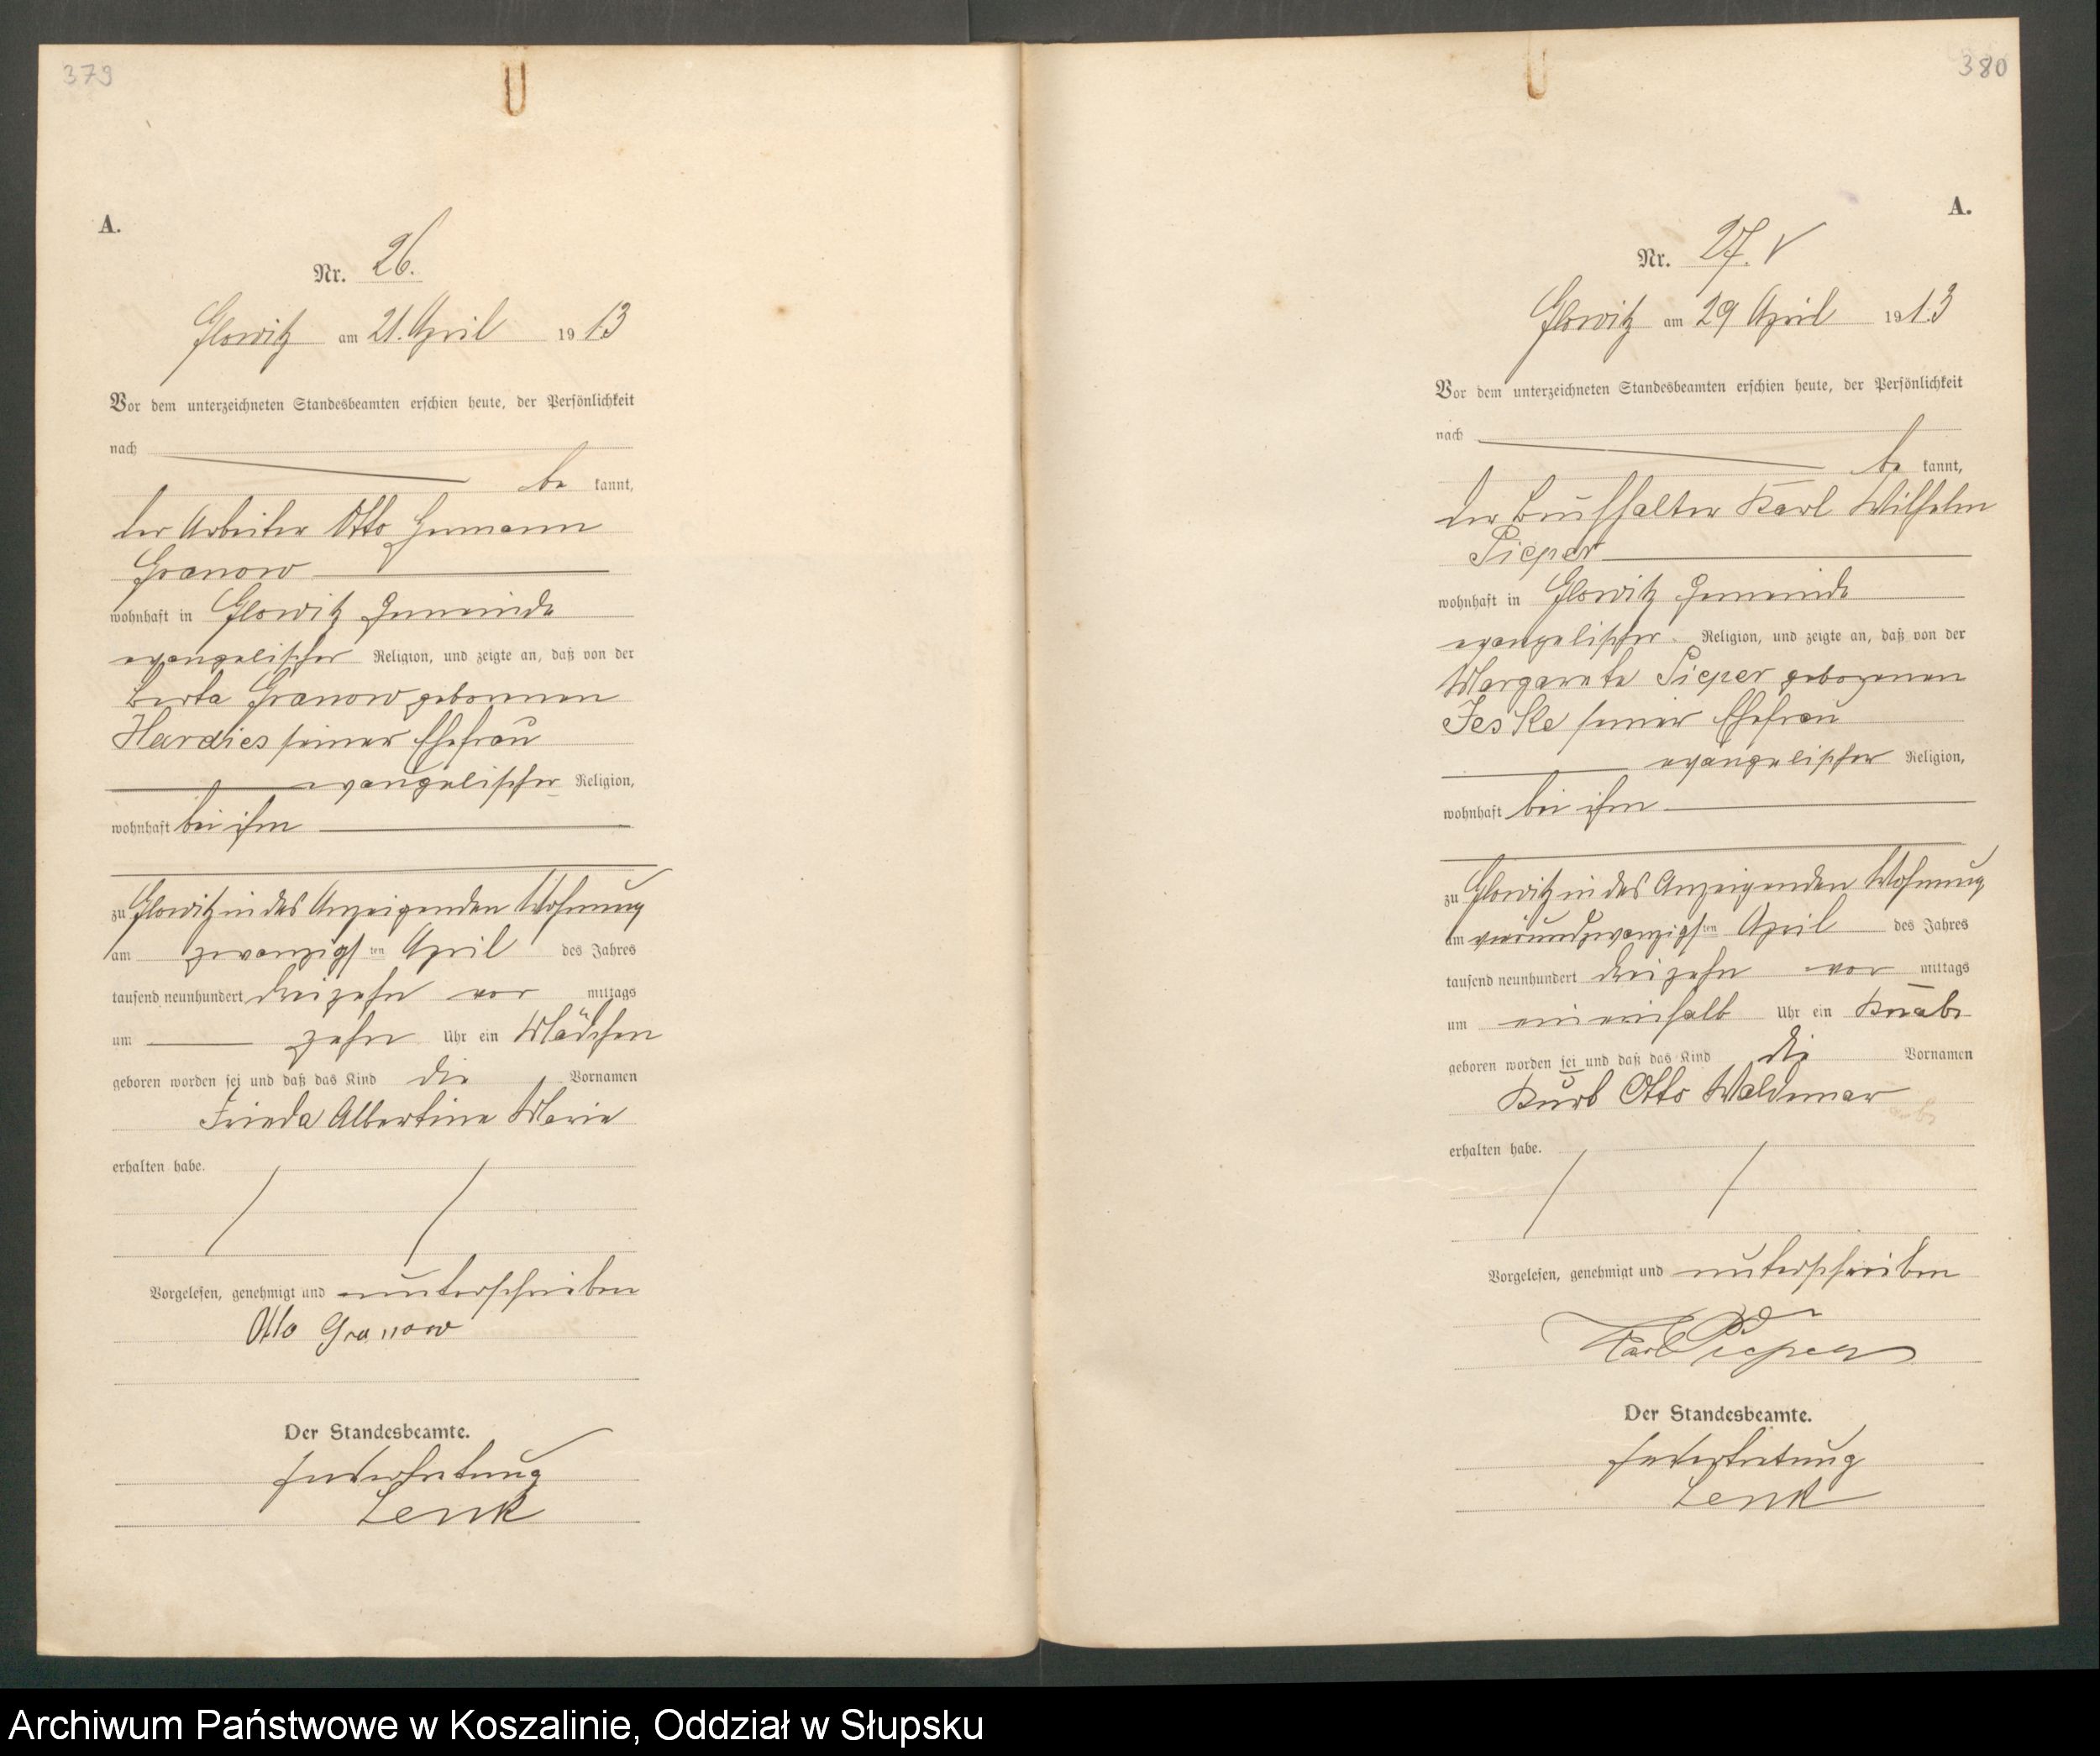 379
A.
Nr. 26.
Glowitz am 21. April 1913
Vor dem unterzeichneten Standesbeamten erschien heute, der Persönlichkeit
nach
be kannt,
der Arbeiter Otto Hermann
Granow
wohnhaft in Glowitz Gemeinde
evangelischer Religion, und zeigte an, daß von der
Berta Granow geborenen
Hardies seiner Ehefrau
evangelischer Religion,
wohnhaft bei ihm
zu Glowitz in des Anzeigenden Wohnung
am zwanzigsten April des Jahres
tausend neunhundert dreizehn vor mittags
um zehn Uhr ein Mädchen
geboren worden sei und daß das Kind die Vornamen
Frieda Albertine Marie
erhalten habe.
Vorgelesen, genehmigt und unterschrieben
Otto Granow
Der Standesbeamte.
Lenk
380
A.
Nr. 27.
Glowitz am 29 April 1913
Vor dem unterzeichneten Standesbeamten erschien heute, der Persönlichkeit
nach
be kannt,
der Buchhalter Karl Wilhelm
Pieper
wohnhaft in Glowitz Gemeinde
evangelischer Religion, und zeigte an, daß von der
Margarete Pieper geborenen
Jeske seiner Ehefrau
evangelischer Religion,
wohnhaft bei ihm
zu Glowitz in des Anzeigenden Wohnung
am vierundzwanzigsten April des Jahres
tausend neunhundert dreizehn vor mittags
um eineinhalb Uhr ein Knabe
geboren worden sei und daß das Kind die Vornamen
Kurt Otto Waldemar
erhalten habe.
Vorgelesen, genehmigt und unterschrieben
Karl Pieper
Der Standesbeamte.
Lenk
Archiwum Państwowe w Koszalinie, Oddział w Słupsku